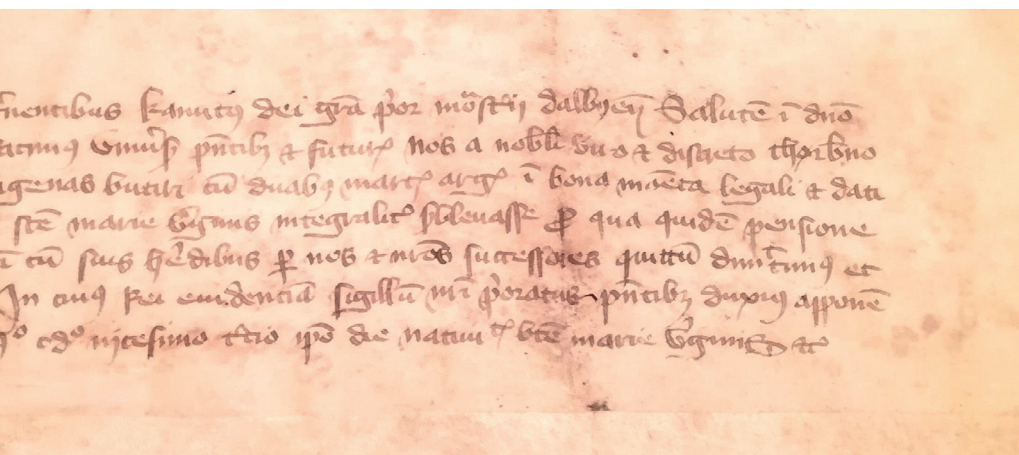 Kanutus dei grā p̄or mōst̄ij dalbyen̄ Salutē ī dnō
vniu̾s p̄ntibȝ ⁊ futur̾ nos a nobłi viro ⁊ discreto thorb̾no
butiri cū duabꝰ marc̾ arg̾ ī bona monēta legali ⁊ dati
marie v̾ginis integralit̾ subleuasse ꝓ qua quidē pensione
cū suis h̾edibus ꝑ nos ⁊ nr̄os successores quittū dimittimꝰ et
In cuiꝰ Rei euidenciā sigillū nr̄i p̄oratus p̄ntibȝ duximꝰ apponē
cdº vicesimo t̾cio ip̄o die natiuit̾ bt̄e marie v̾ginis ⁊c̾